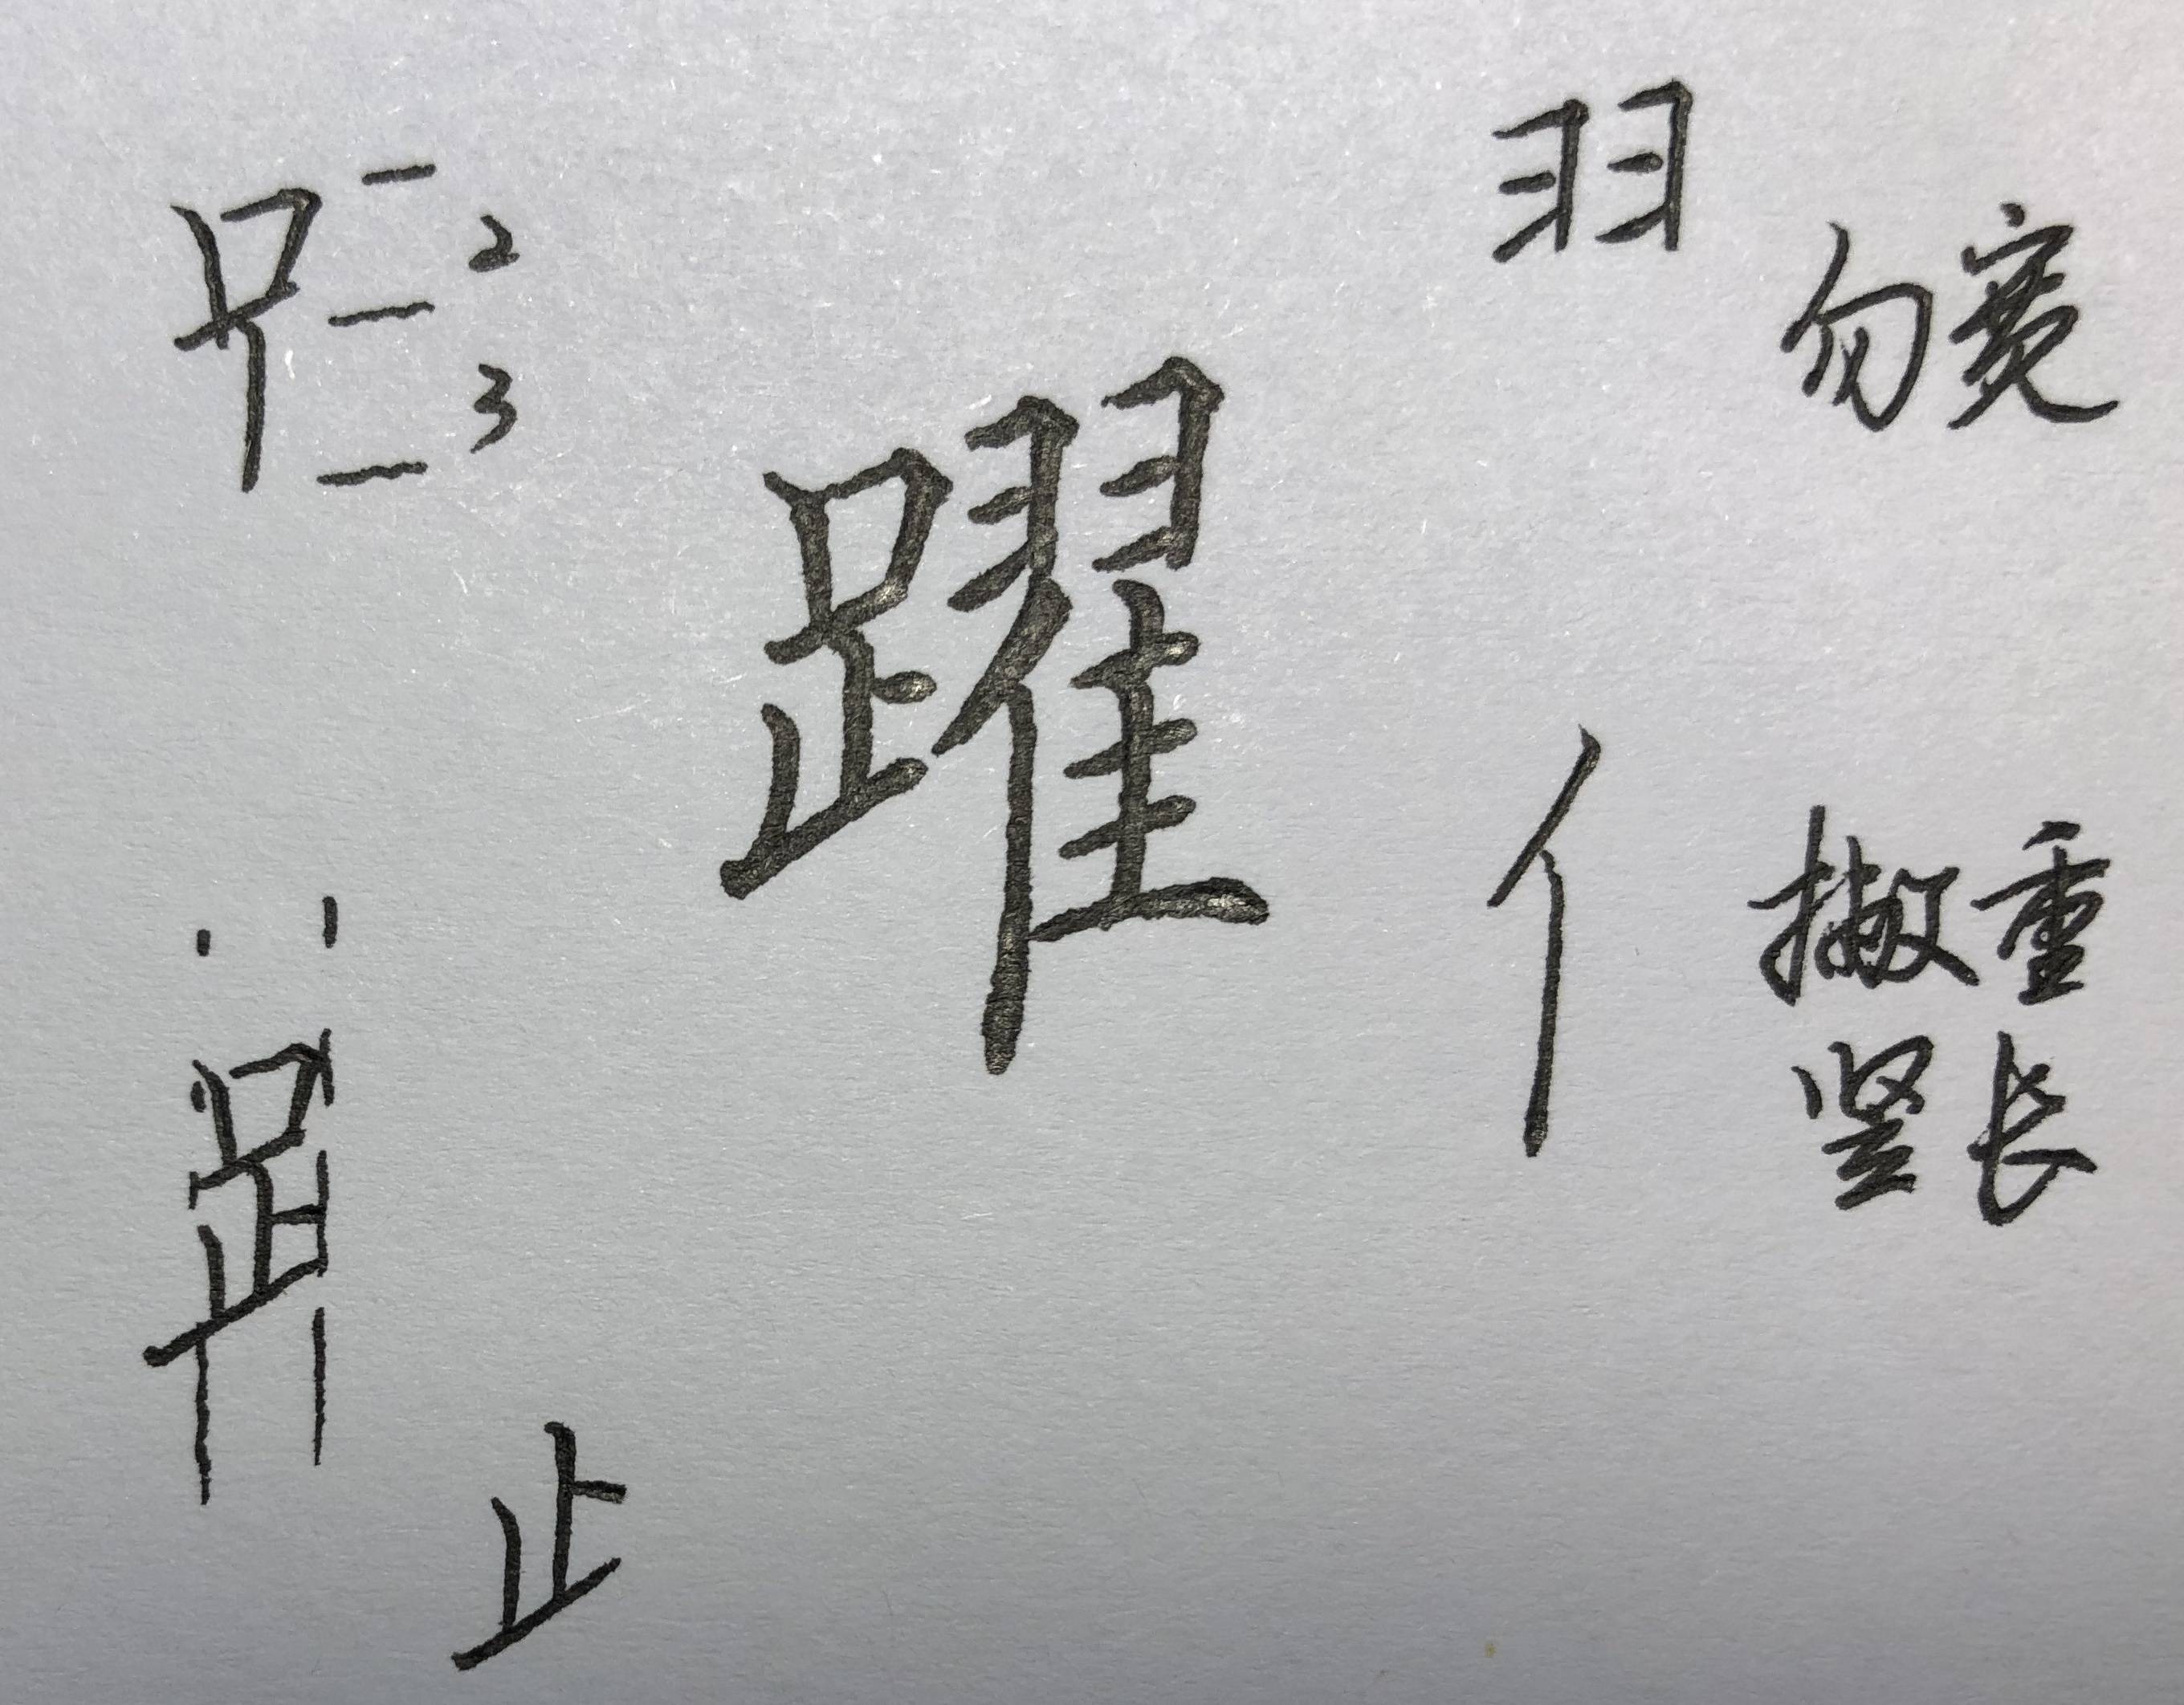 2
3
躍
羽
勿宽
亻
撇重
竖长
𧾷
止